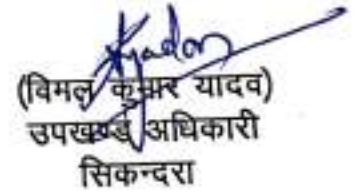 (विमल कुमार यादव)
उपखण्ड अधिकारी
सिकन्दरा